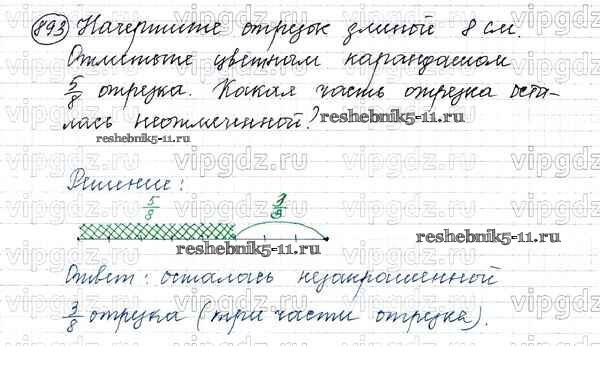 893 Начертите отрезок длиной 8 см.
Отметьте цветным карандашом
5/8 отрезка. Какая часть отрезка оста-
лась неотмеченной?
reshebnik5-11.ru
reshebnik5-11.ru
vipgdz.ru
Решение:
5/8 3/8
reshebnik5-11.ru
reshebnik5-11.ru
Ответ: осталась незакрашенной
3/8 отрезка (три части отрезка).